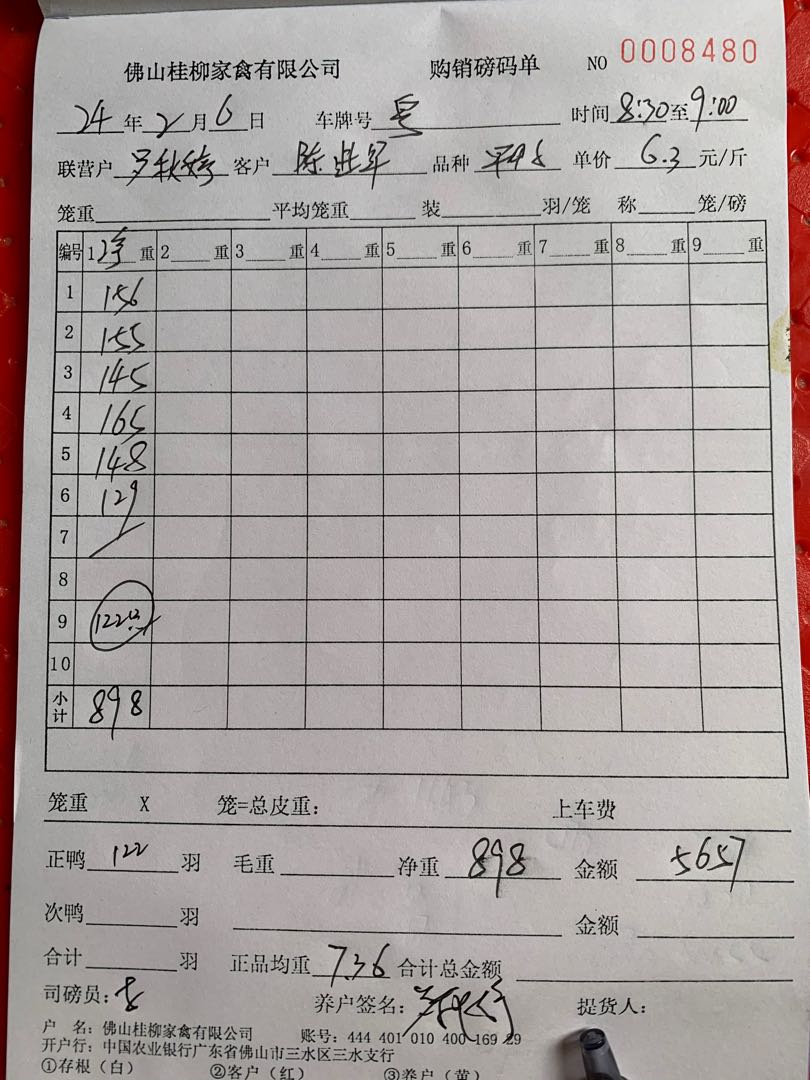 佛山桂柳家禽有限公司 购销磅码单 NO 0008480
24年2月6日 车牌号 时间8:30至9:00
联营户 罗秋 客户 陈 品种 单价 6.3 元/斤
笼重 平均笼重 装 羽/笼 称 笼/磅
编号 1 重 2 重 3 重 4 重 5 重 6 重 7 重 8 重 9 重
1 156
2 155
3 145
4 165
5 148
6 129
7
8
9 122
10
小计 898
笼重 X 笼=总皮重: 上车费
正鸭 122 羽 毛重 净重 898 金额 5657
次鸭 羽 金额
合计 羽 正品均重 7.36 合计总金额
司磅员: 养户签名: 提货人:
户 名: 佛山桂柳家禽有限公司 账号: 444 401 010 400 169 29
开户行: 中国农业银行广东省佛山市三水区三水支行
①存根(白) ②客户(红) ③养户(黄)